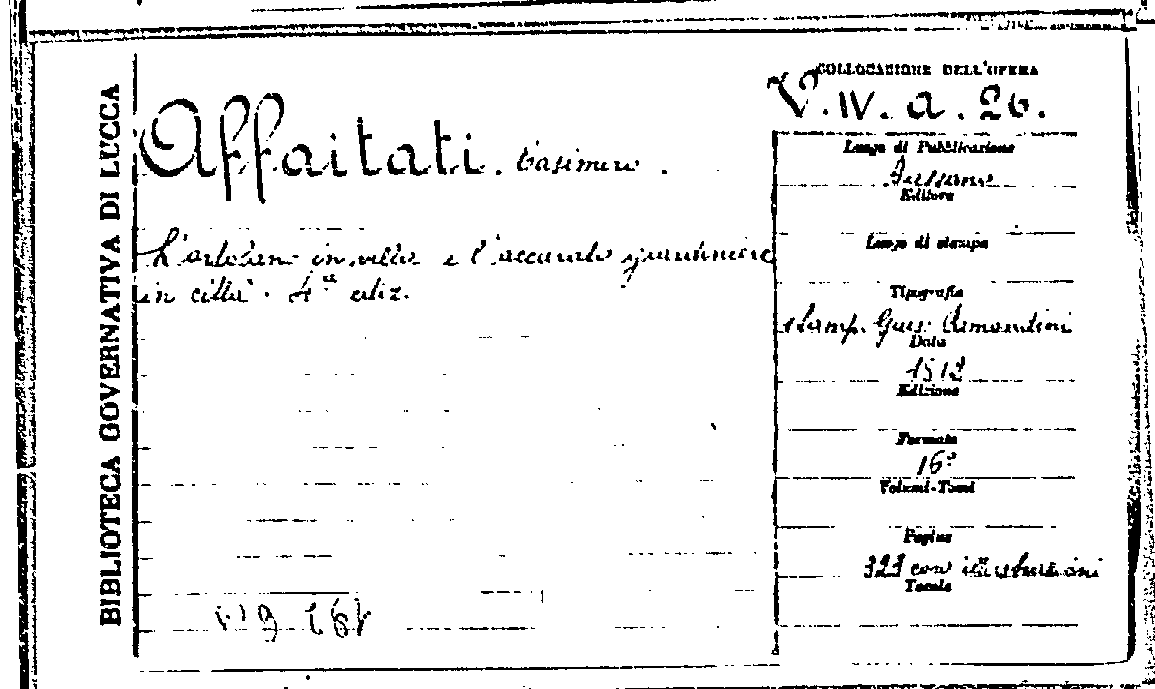 BIBLIOTECA GOVERNATIVA DI LUCCA
COLLOCAZIONE DELL'OPERA
V. IV. a. 26.
Affaitati. Casimiro.
L'ortolano in villa e l'accurato giardiniere
in città. 4ª ediz.
Luogo di Pubblicazione
Bassano
Editore
Luogo di stampa
Tipografia
stamp. Gius. Remondini
Data
Edizione
Formato
16º
Volumi-Tomi
Pagine
323 con illustrazioni
Tavole